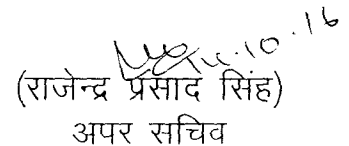 10.16
(राजेन्द्र प्रसाद सिंह)
अपर सचिव